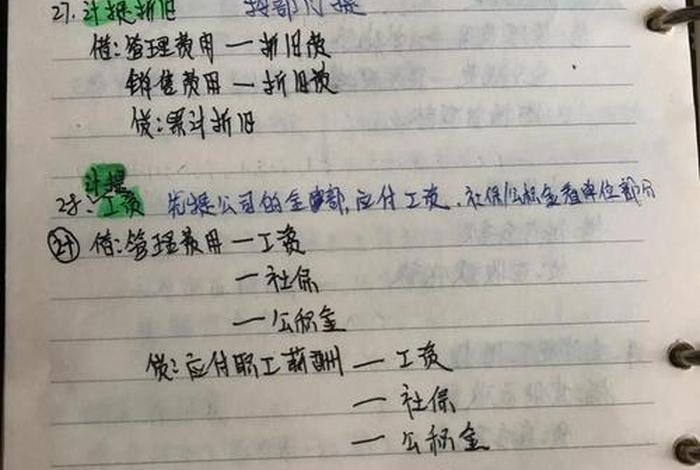 27. 计提折旧 按部门提
借:管理费用 — 折旧费
销售费用 — 折旧费
贷:累计折旧
计提
28、工资 先提公司的全部,应付工资、社保/公积金看单位部分
计 借:管理费用 — 工资
— 社保
— 公积金
贷:应付职工薪酬 — 工资
— 社保
— 公积金